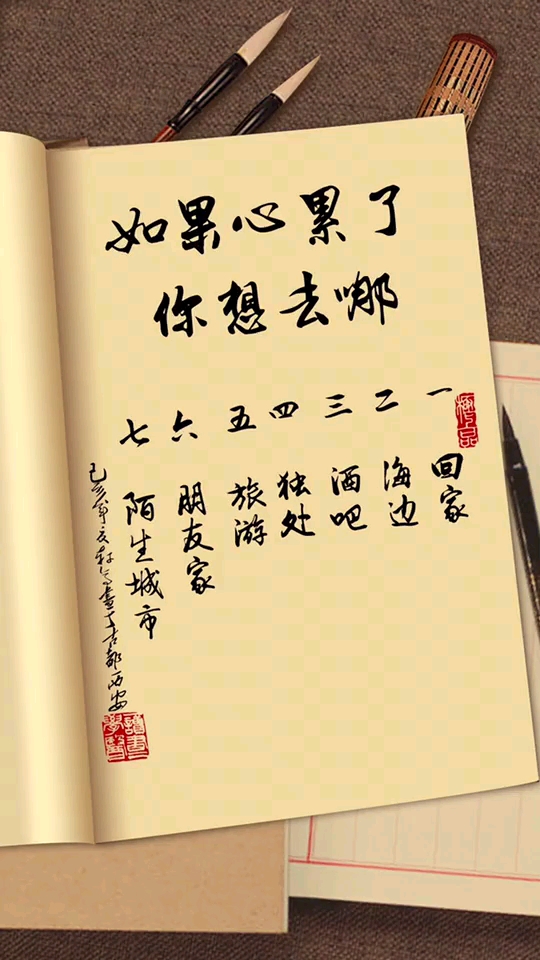 如果心累了
你想去哪
一 回家
二 海边
三 酒吧
四 独处
五 旅游
六 朋友家
七 陌生城市
己亥年 书于古都西安